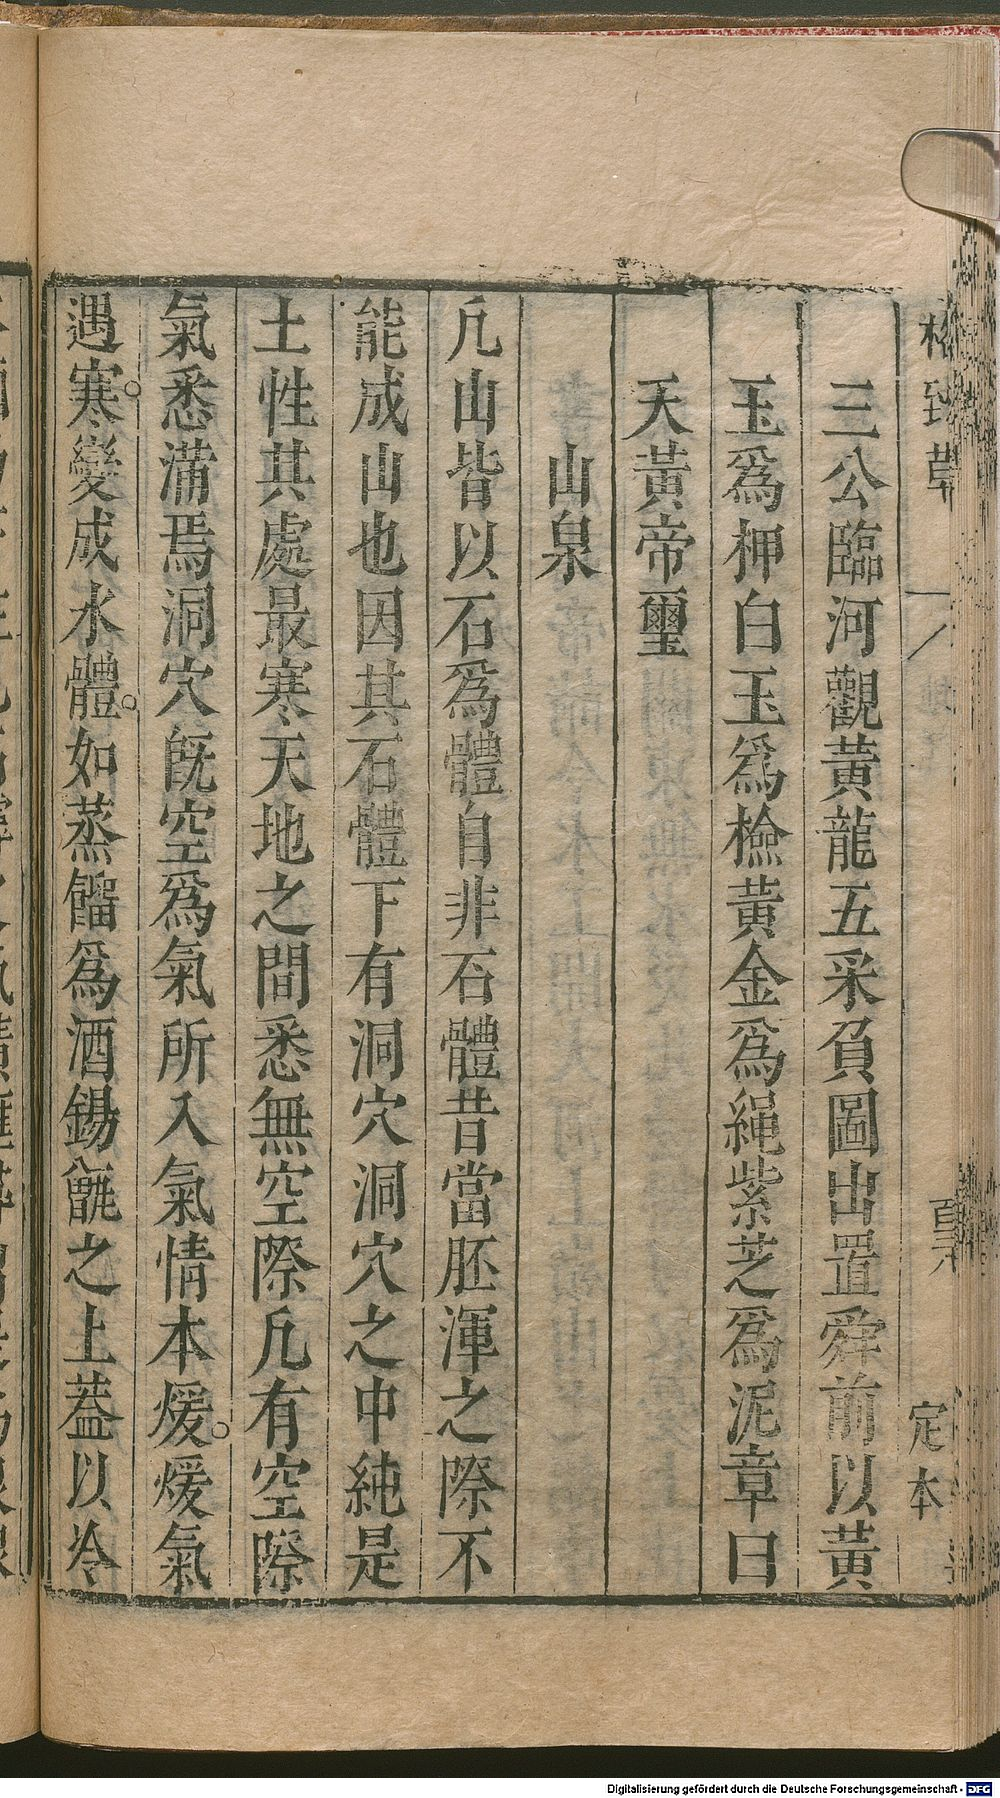 格致草
百六
定本
三公臨河觀黃龍五采負圖出置舜前以黃
玉爲柙白玉爲檢黃金爲繩紫芝爲泥章曰
天黃帝璽
山泉
凢山皆以石爲體自非石體昔當胚渾之際不
能成山也因其石體下有洞穴洞穴之中純是
土性其處最寒天地之間悉無空際凢有空際
氣悉滿焉洞穴旣空爲氣所入氣情本煖煖氣
遇寒變成水體如蒸餾爲酒錫甑之上蓋以冷
Digitalisierung gefördert durch die Deutsche Forschungsgemeinschaft - DFG